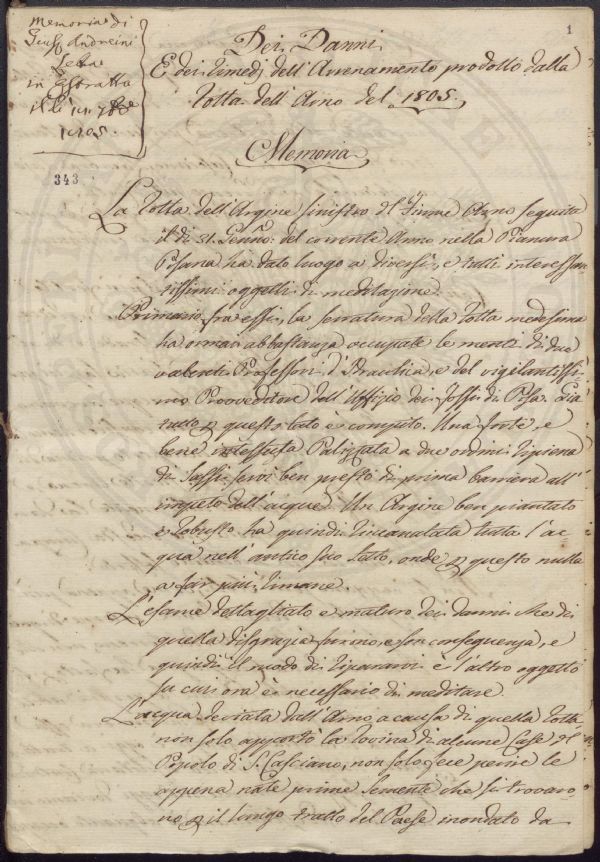 Memoria di
Giusp. Andreini
Letta
in
il dì
1805.
1
Dei Danni
E dei Rimedj dell'Arrenamento prodotto dalla
Rotta dell'Arno del 1805.
Memoria
343
La Rotta dell'Argine sinistro del Fiume Arno seguita
il dì 31. Genno: del corrente Anno nella Pianura
Pisana ha dato luogo a diversi, e tutti interessan-
tissimi oggetti di meditazione.
Primario fra essi, la serratura della Rotta medesima
ha ormai abbastanza occupate le menti di due
valenti Professori d'Idraulica, e del vigilantissi-
mo Provveditore dell'Uffizio dei Fossi di Pisa. Già
tutto p questo lato è compito. Una forte, e
bene intessuta Palizzata a due ordini ripiena
di Sassi servì ben presto di prima barriera all'
impeto dell'acque. Un Argine ben piantato
e Robusto ha quindi rincanalata tutta l'ac-
qua nell'antico suo Letto, onde p questo nulla
a far più rimane.
L'esame dettagliato e maturo dei danni che di
quella disgrazia furono, e son conseguenza, e
quindi il modo di ripararvi è l'altro oggetto
su cui ora è necessario di meditare.
L'acqua deviata dall'Arno a causa di quella Rotta
non solo apportò la rovina di alcune Case del
Popolo di S. Casciano, non solo fece perire le
appena nate prime Semente che si trovaro-
no p il lungo tratto del Paese inondato da